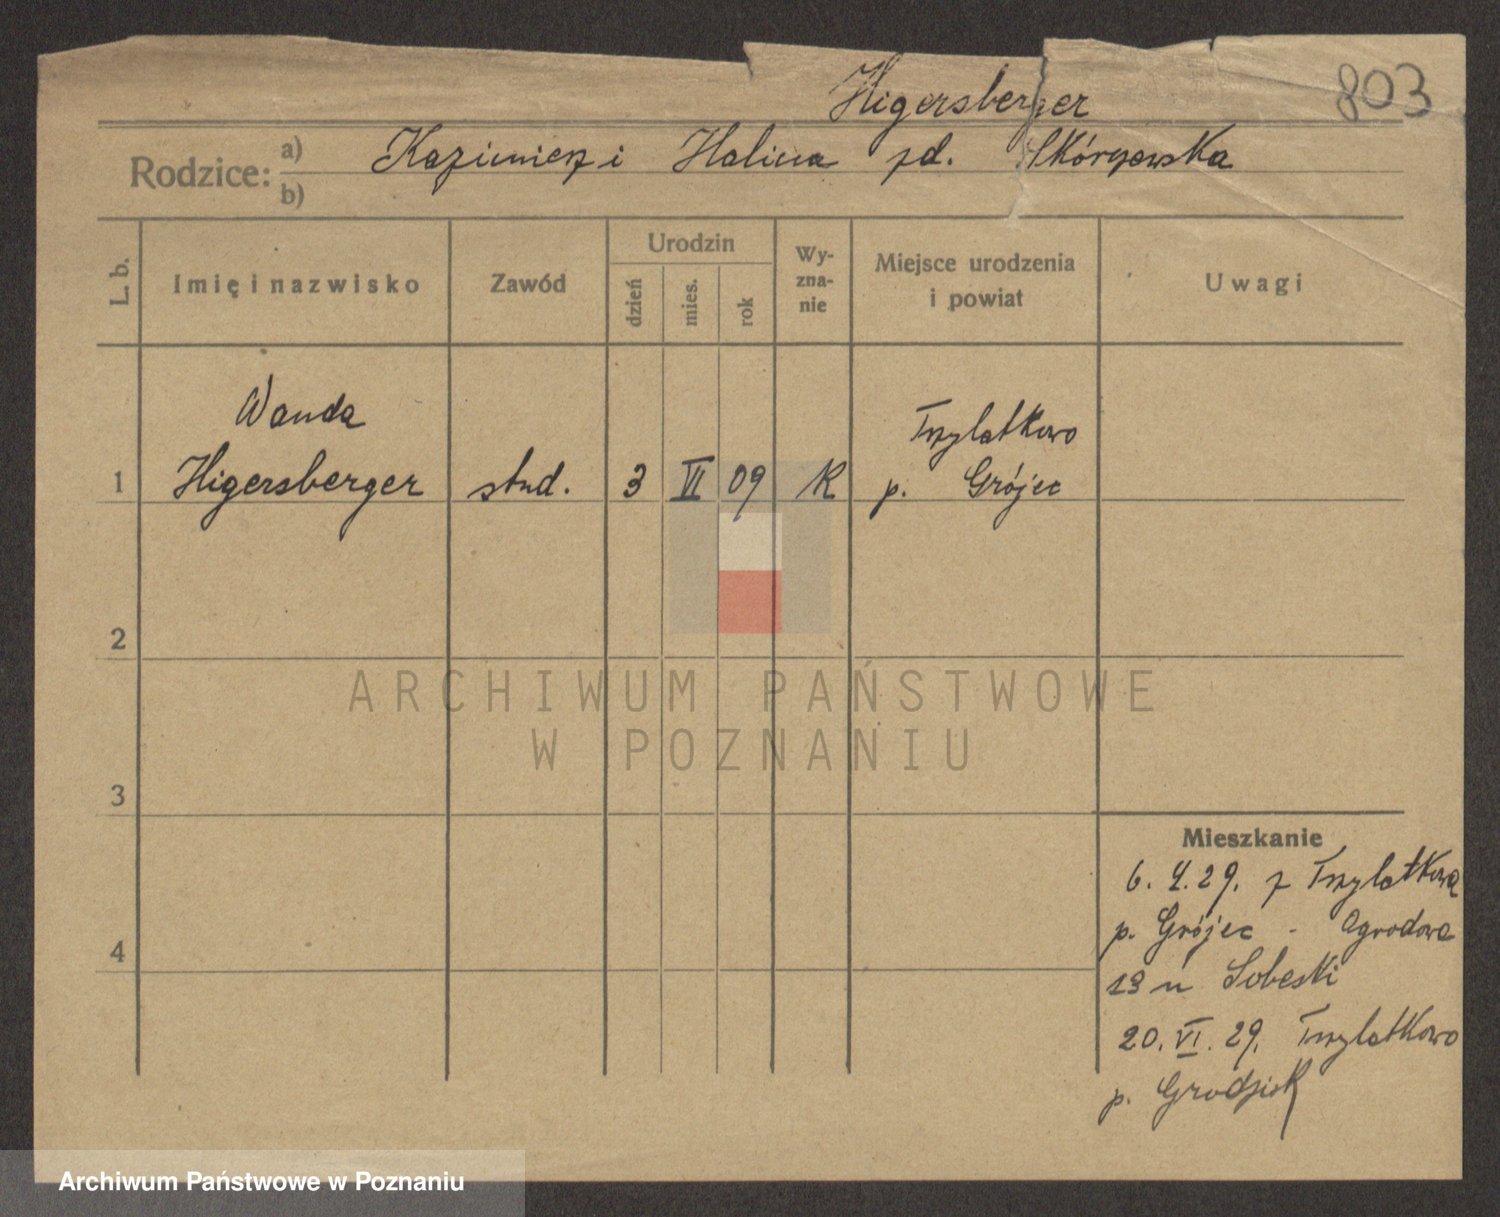 Higersberger
803
Rodzice: a) b)
Kazimierz i Halina zd. Skórzewska
L. b.
Imię i nazwisko
Zawód
Urodzin
dzień
mies.
rok
Wy-
zna-
nie
Miejsce urodzenia
i powiat
Uwagi
Wanda
Trzylatkowo
1 Higersberger stud. 3 VI 09 K p. Grójec
2
ARCHIWUM PAŃSTWOWE
W POZNANIU
3
Mieszkanie
6. 4. 29. z Trzylatkowa
p. Grójec - Ogrodowa
4
13 u Sobeski
20. VI. 29. Trzylatkowo
p. Grodzisk
Archiwum Państwowe w Poznaniu